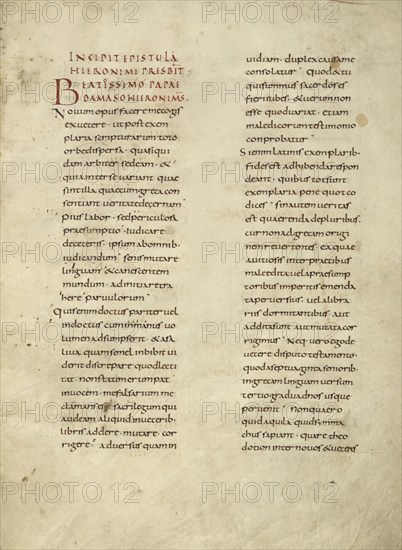 INCIPIT EPISTULA
HIERONIMI PRESBIT
BEATISSIMO PAPAE
DAMASO HIERONIMS.
Nouum opus facere me cogis
ex uetere · ut post exem
plaria scripturarum toto
orbe dispersa · quasi qui
dam arbiter sedeam · &
quia inter se uariant quae
sint illa quae cum greca con
sentiant ueritate decernam
Pius labor · sed periculosa
praesumptio · iudicare
de ceteris · ipsum ab omnib;
iudicandum senis mutare
linguam · & canescentem
mundum · ad initia retra
here paruulorum
Quis enim doctus pariter uel
indoctus cum in manus uo
lumen adsumpserit · & a sa
liua quam semel inbibit ui
derit discrepare quod lecti
tat · non statim erumpat
in uocem · me falsarium me
clamans esse sacrilegum qui
audeam aliquid in ueterib;
libris addere · mutare · cor
rigere aduersus quam in
uidiam · duplex causa me
consolatur quod & tu
qui summus sacerdos es
fieri iubes · & uerum non
esse quod uariat · etiam
maledicorum testimonio
comprobatur
Si enim latinis exemplarib;
fides est adhibenda respon
deant · quibus tot sunt
exemplaria pene quot co
dices sin autem ueritas
est quaerenda de pluribus ·
cur non ad grecam origi
nem reuertentes · ea quae
a uitiosis interpraetibus
male edita uel a praesump
toribus imperitis emenda
ta peruersius · uel a libra
riis dormitantibus aut
addita sunt aut mutata cor
rigimus Neq; uero ego de
uetere disputo testamento ·
quod a septuaginta seniorib;
in gream linguam uersum
tertio gradu ad nos usque
peruenit non quaero
quid aquila quid symma
chus sapiant · quare theo
dotion inter nouos & ueteres